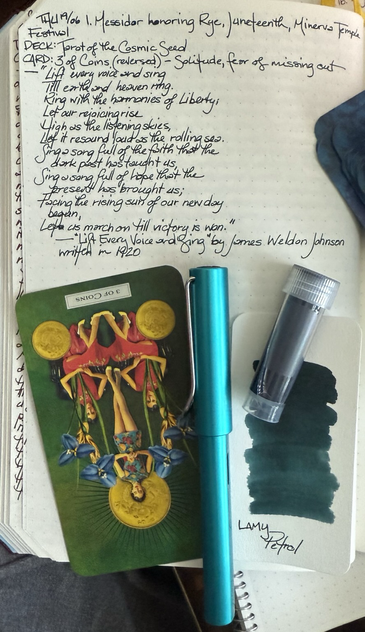 THU 19/06 1. Messidor honoring Rye, Juneteenth, Minerva Temple
Festival
DECK: Tarot of the Cosmic Seed
CARD: 3 of Coins (reversed) - Solitude, fear of missing out
— "Lift every voice and sing
Till earth and heaven ring,
Ring with the harmonies of Liberty;
Let our rejoicing rise
High as the listening skies,
Let it resound loud as the rolling sea.
Sing a song full of the faith that the
dark past has taught us,
Sing a song full of hope that the
present has brought us;
Facing the rising sun of our new day
begun,
Let us march on till victory is won."
— "Lift Every Voice and Sing" by James Weldon Johnson
written in 1920
3 OF COINS
LAMY
Petrol